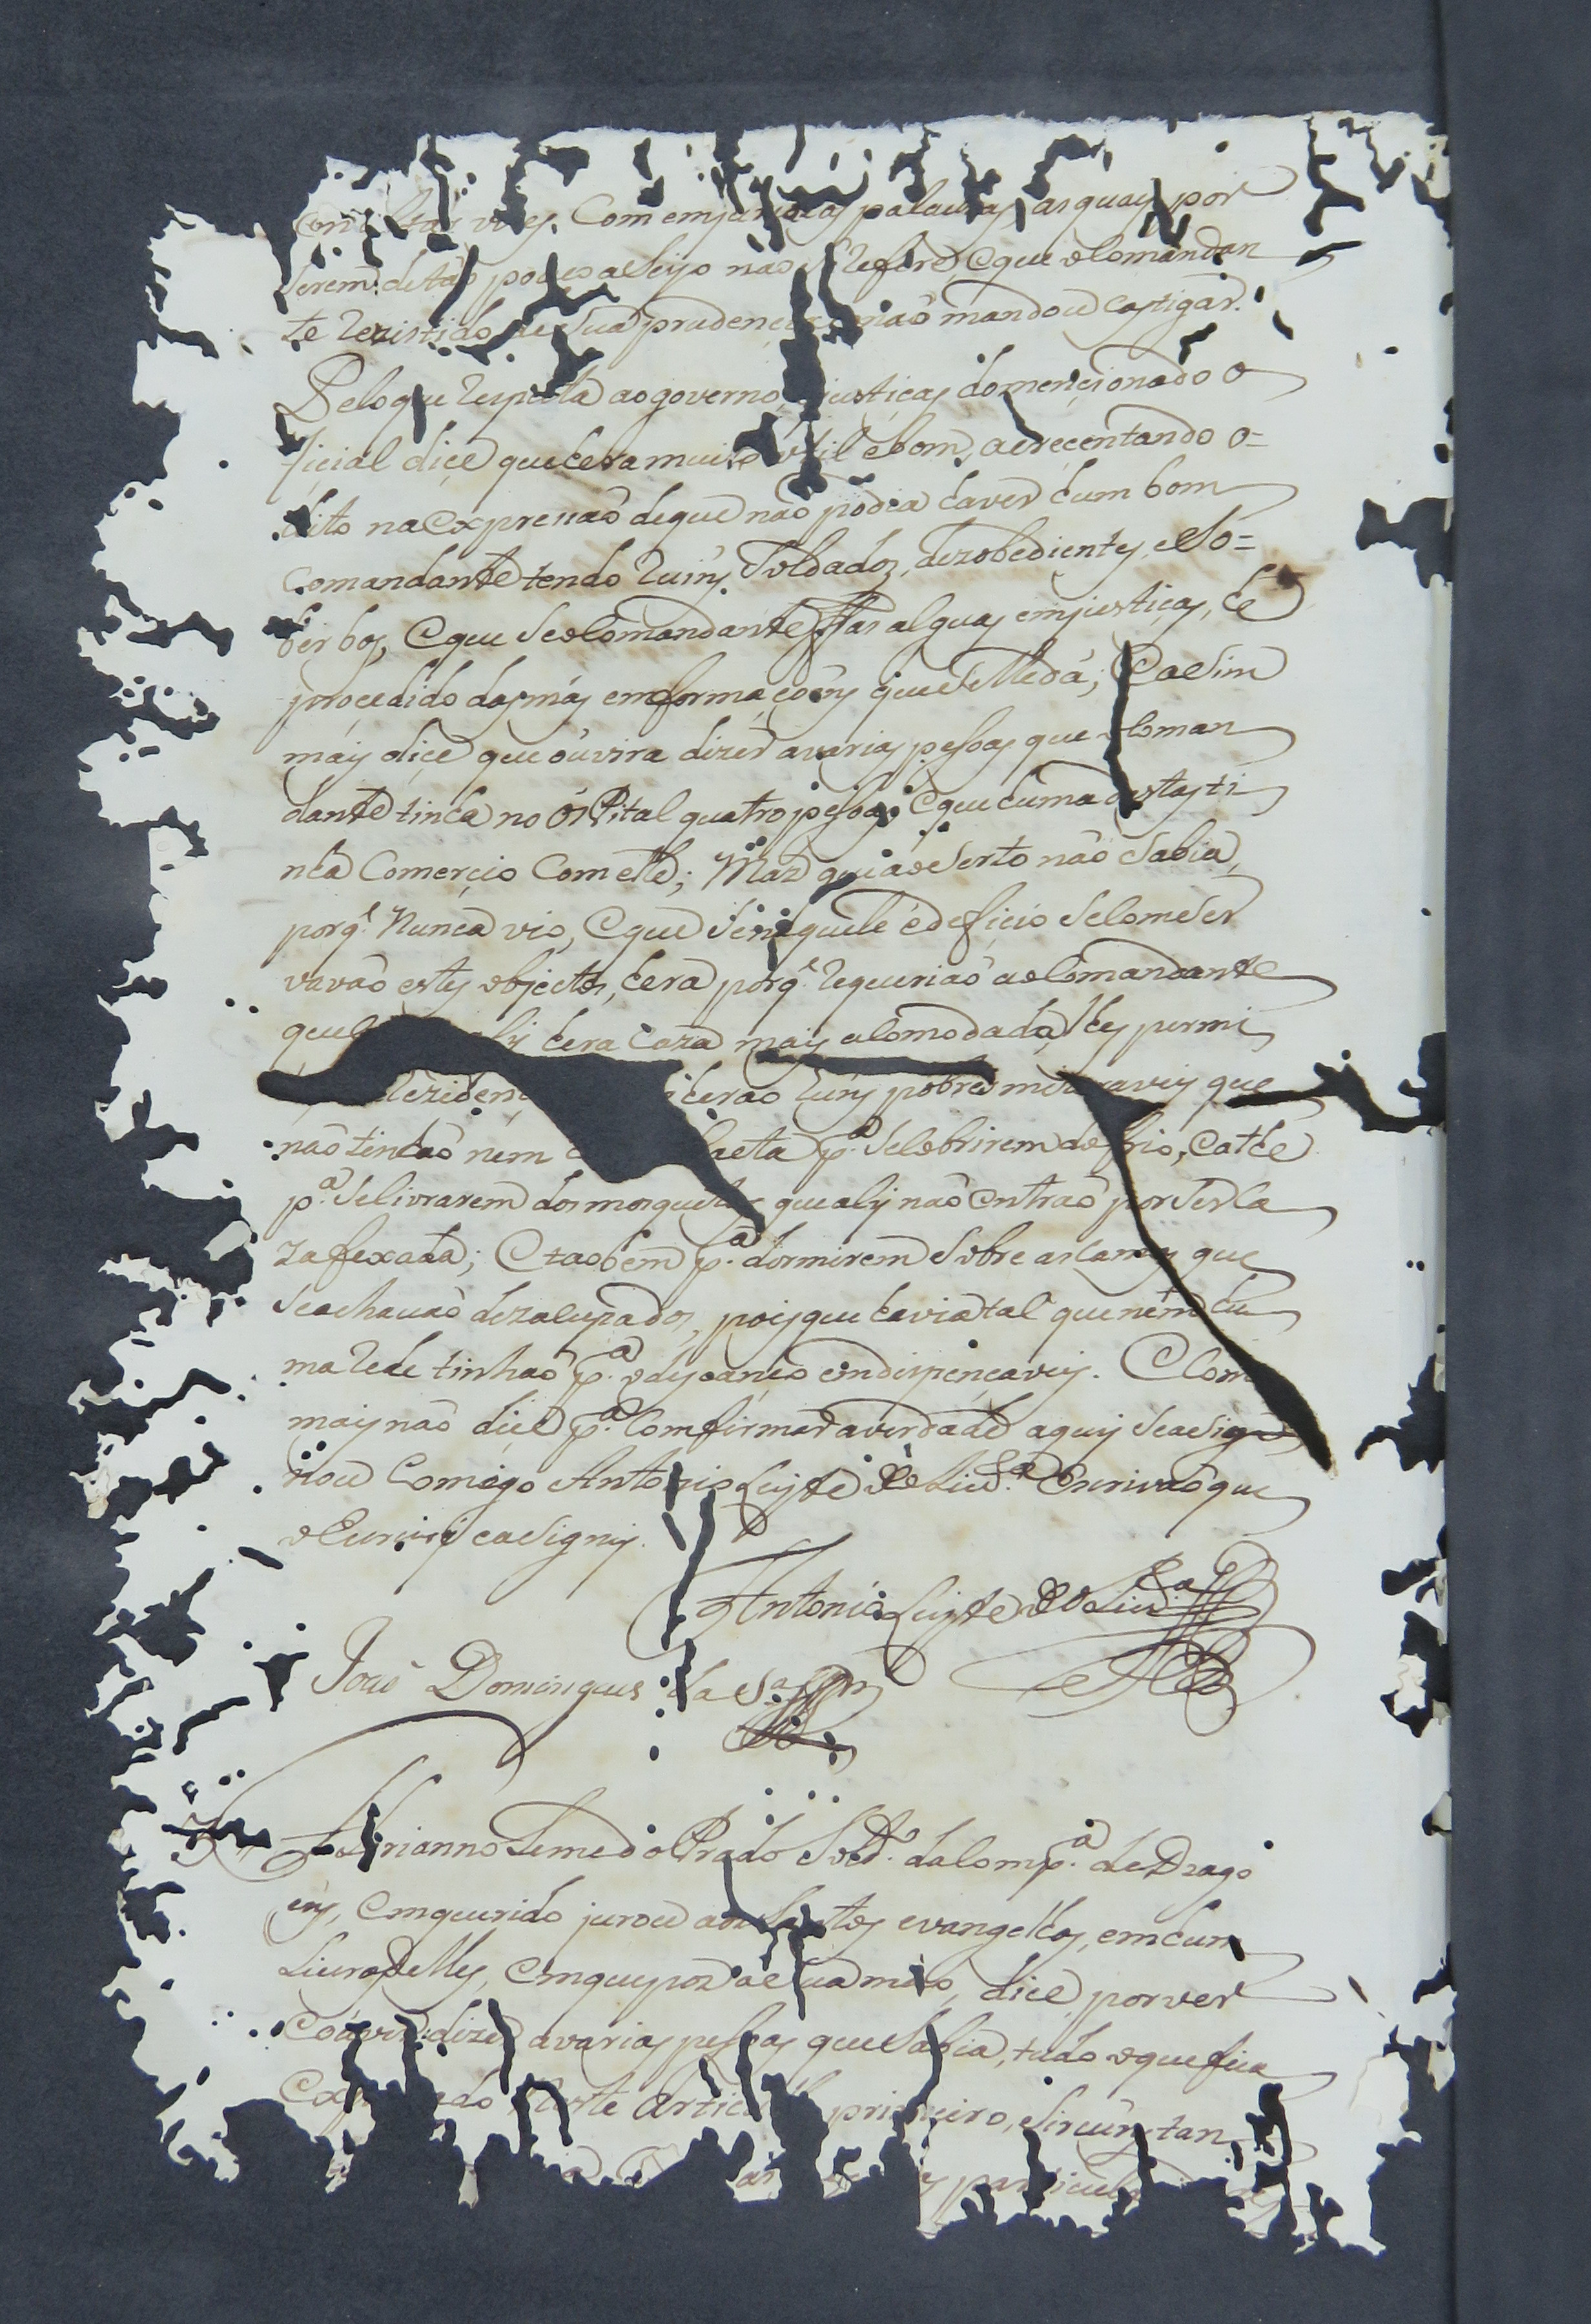 vozes, Com emjuriozas palavras, as quais por
serem de tão pouco aseyo não se Refere, e que o Coman dan
te Rezistido de Sua prudencia não mandou castigar.
Pelo que Respeita ao governo, justiças do mencionado o
ficial dice que hera muito util e bom, acrecentando o=
dito na expressão de que não podia haver hum bom
Comandante tendo Ruins Soldados, dezobedientes, e So=
berbos, e que Se o Comandante fas alguas emjustiças, he
procedido das más emformaçoins que Se lhe dá; e aSim
mais dice que ouvira dizer a varias pessoas que o Coman
dante tinha no OsPital quatro pessoas, e que huma destas ti
nha Comercio Com elle; Mas que ao Serto não Sabia,
porq.e Nunca vio, e que Se naquele edeficio Se ConSer
vavão estes objectos, hera porq.e Requerião ao Comandante
que hera Caza mais acomodada, lhes permi
Rezidenc herão huns pobres mizaraveis que
não tinhão nem aeta p.a Se Cobrirem do frio, e athe
p.a Se livrarem dos mosquitos que aly não entrão por Ser Ca
za fexada; e taobem p.a dormirem Sobre as camas que
Se achavão dezacupados, pois que havia tal que nem hu
ma Rede tinhao p.a o descanço endispençaveis. E Como
mais não dice p.a Comfirmar a verdade aquy Se aSig
nou Comigo Antonio Luys de Oliv.ra Escrivão que
o Escrivi e aSigney.
Antonio Luys de Oliv.ra
João Domingues da S.a
Adrianno Semedo Prado Sold.o da Comp.a de Drago
ins, emquerido jurou aos Santos evangelhos, em hum
Livro delles, em que pos a Sua mão, dice por ver
e ouvir dizer a varias pessoas que Sabia, tudo o que fica
neste Artic primeiro, Sircunstan
particula